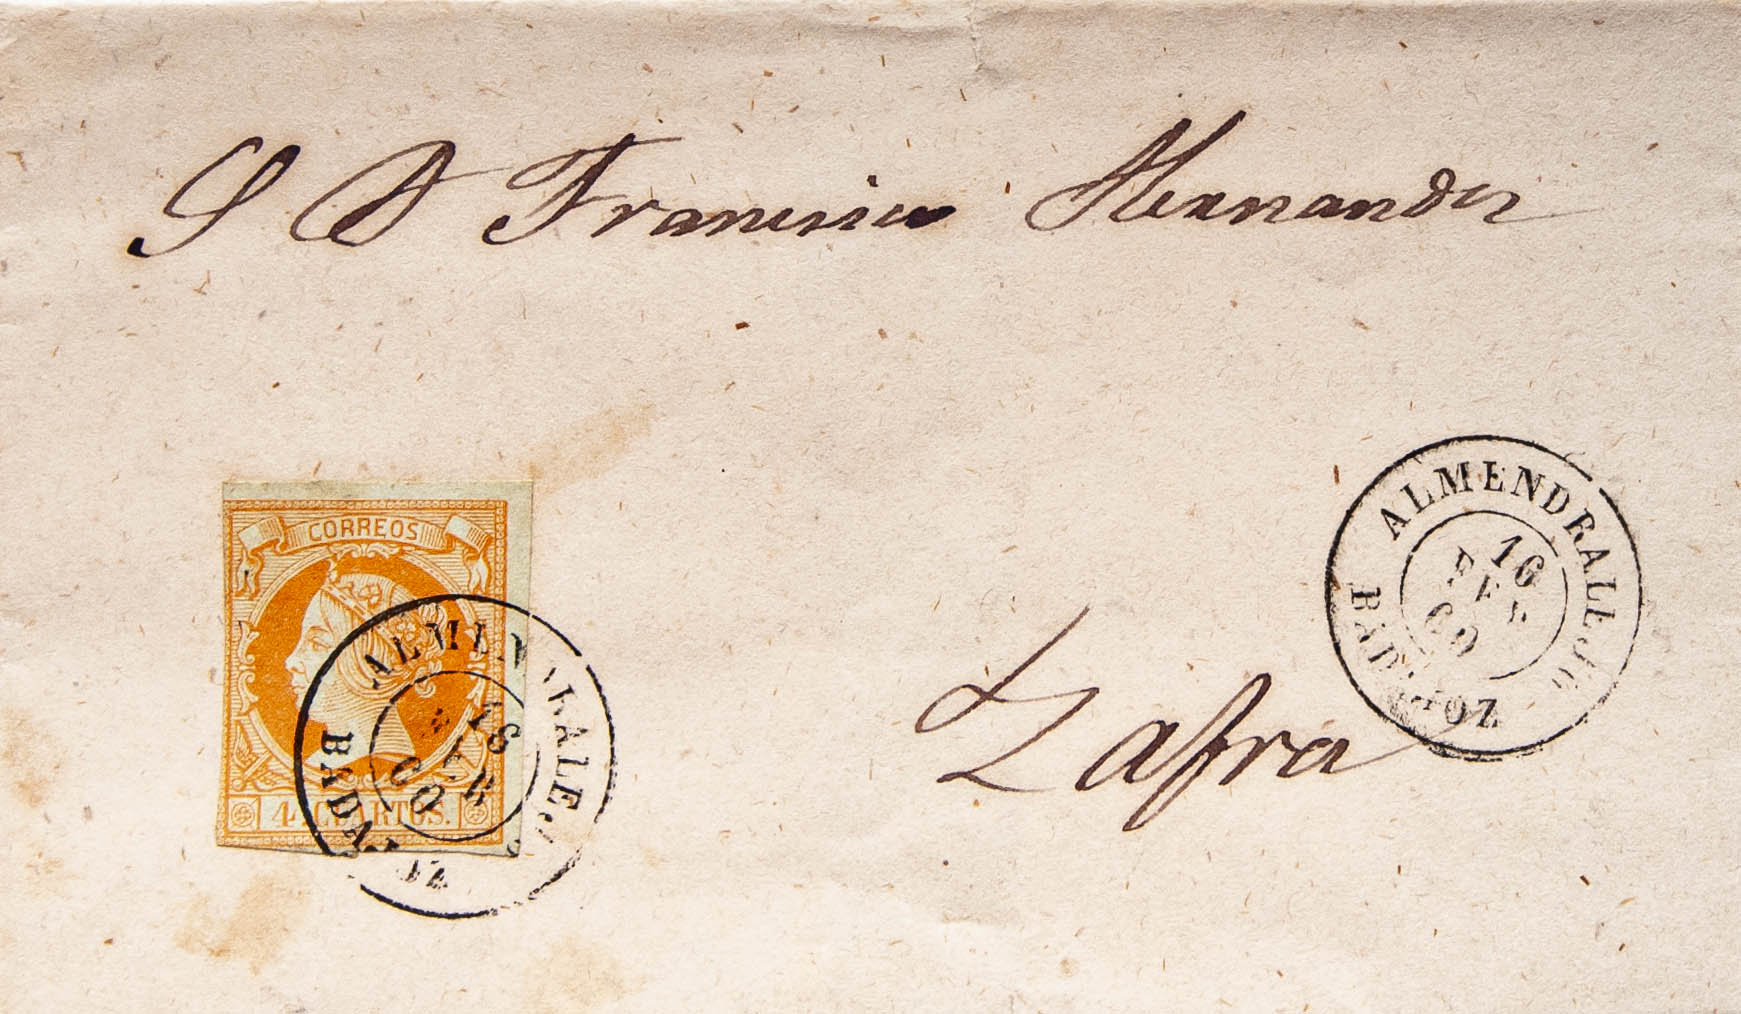 S D Francisco Hernandez
CORREOS
4 CUARTOS.
ALMENDRALEJO
BADAJOZ
ALMENDRALEJO
16
FEB
60
BADAJOZ
Zafra